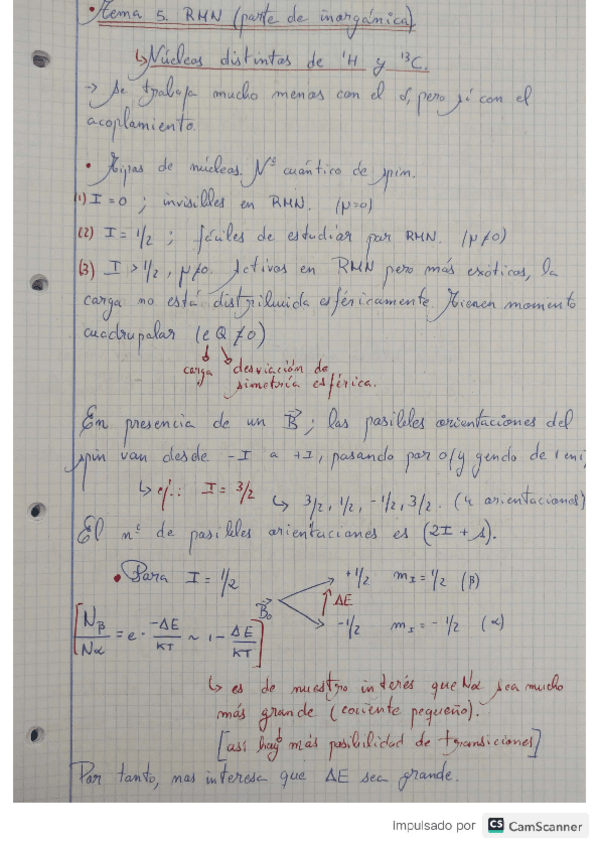 • Tema 5. RMN (parte de inorgánica)
↳ Núcleos distintos de ¹H y ¹³C.
→ Se trabaja mucho menos con el δ, pero sí con el
acoplamiento.
• Tipos de núcleos. Nº cuántico de spin.
(1) I = 0 ; invisibles en RMN. (μ=0)
(2) I = 1/2 ; fáciles de estudiar por RMN. (μ≠0)
(3) I > 1/2, μ≠0. Activos en RMN pero más exóticos, la
carga no está distribuida esféricamente. Tienen momento
cuadrupolar (e Q ≠ 0)
carga desviación de
simetría esférica.
En presencia de un B⃗; las posibles orientaciones del
spin van desde -I a +I, pasando por 0/y yendo de 1 en 1,
↳ ej.: I = 3/2 ↳ 3/2, 1/2, -1/2, 3/2. (4 orientaciones)
El nº de posibles orientaciones es (2I + 1).
• Para I = 1/2 B⃗₀ +1/2 m_I = 1/2 (β)
↑ΔE
-1/2 m_I = -1/2 (α)
[Nβ/Nα = e · -ΔE/KT ~ 1 - ΔE/KT]
↳ es de nuestro interés que Nα sea mucho
más grande (cociente pequeño).
[así hay más posibilidad de transiciones]
Por tanto, nos interesa que ΔE sea grande.
Impulsado por CS CamScanner